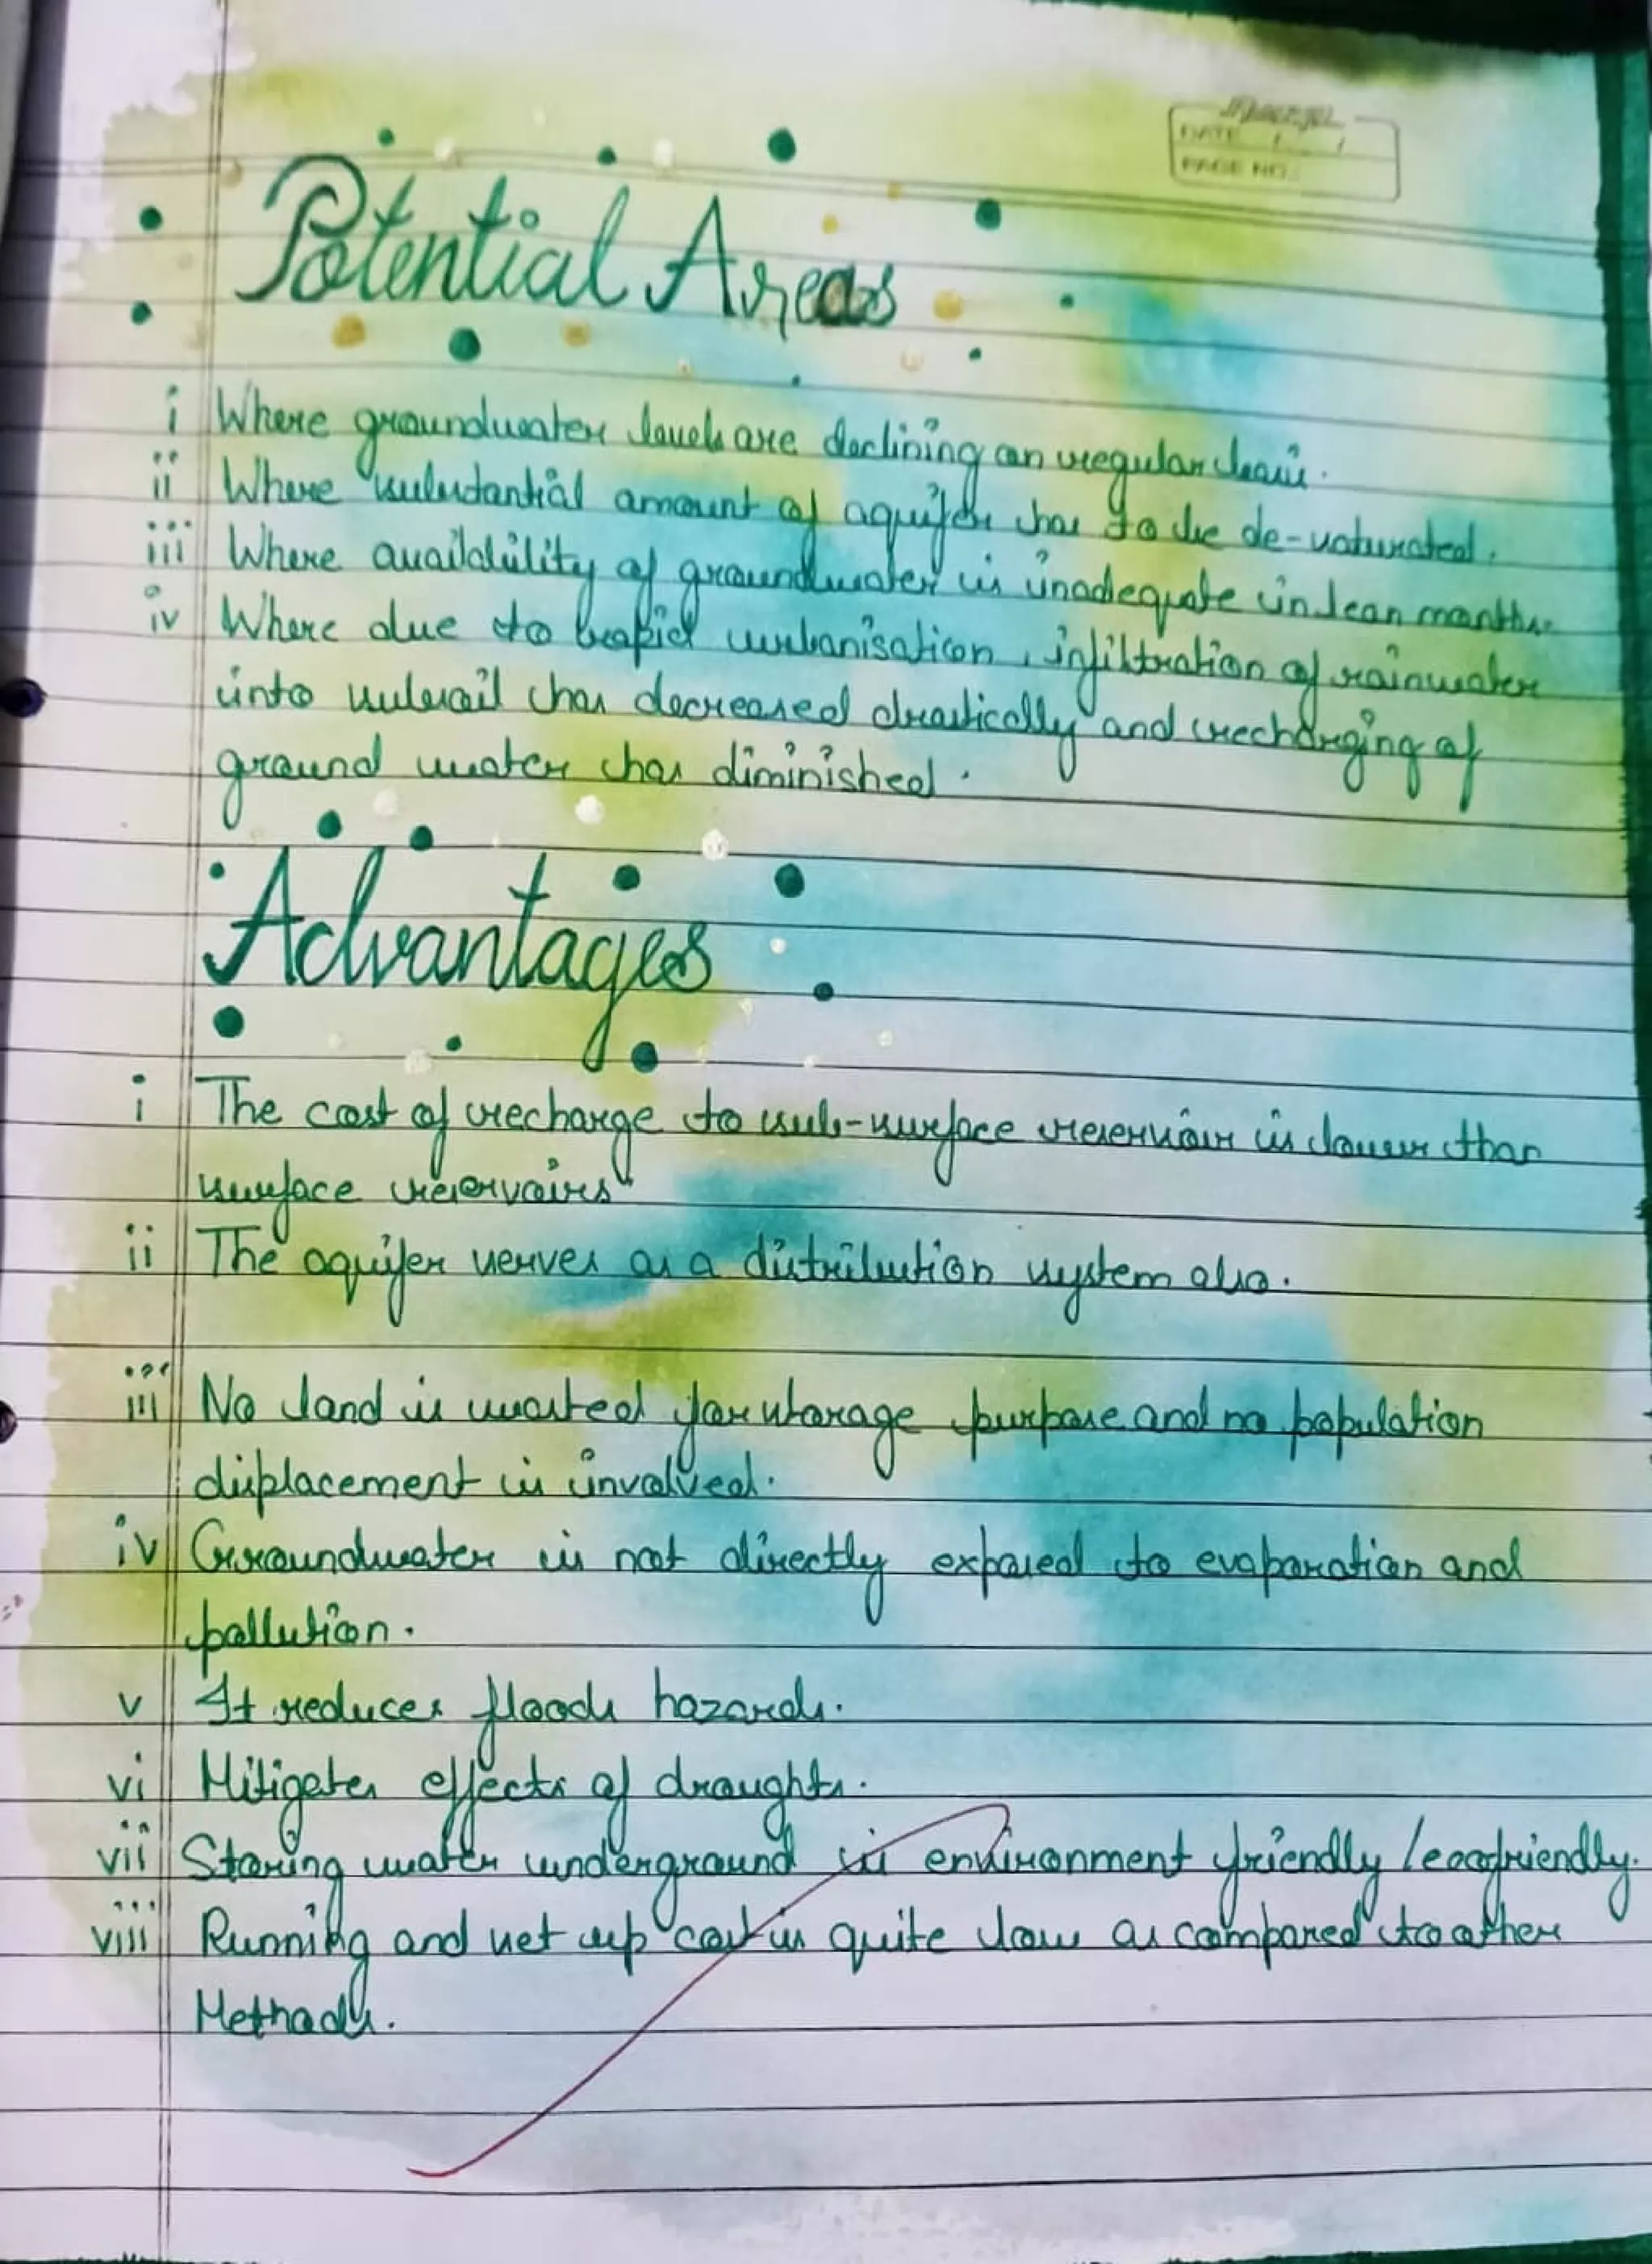 DATE / /
PAGE NO.:
Potential Areas
i Where groundwater levels are declining on regular basis.
ii Where substantial amount of aquifer has to be de-saturated.
iii Where availability of groundwater is inadequate in lean months.
iv Where due to rapid urbanisation, infiltration of rainwater
into subsoil has decreased drastically and recharging of
ground water has diminished.
Advantages
i The cost of recharge to sub-surface reservoir is lower than
surface reservoirs
ii The aquifer serves as a distribution system also.
iii No land is wasted for storage purpose and no population
displacement is involved.
iv Groundwater is not directly exposed to evaporation and
pollution.
v It reduces floods hazards.
vi Mitigates effects of draughts.
vii Storing water underground is environment friendly / ecofriendly.
viii Running and set up cost is quite low as compared to other
Methods.